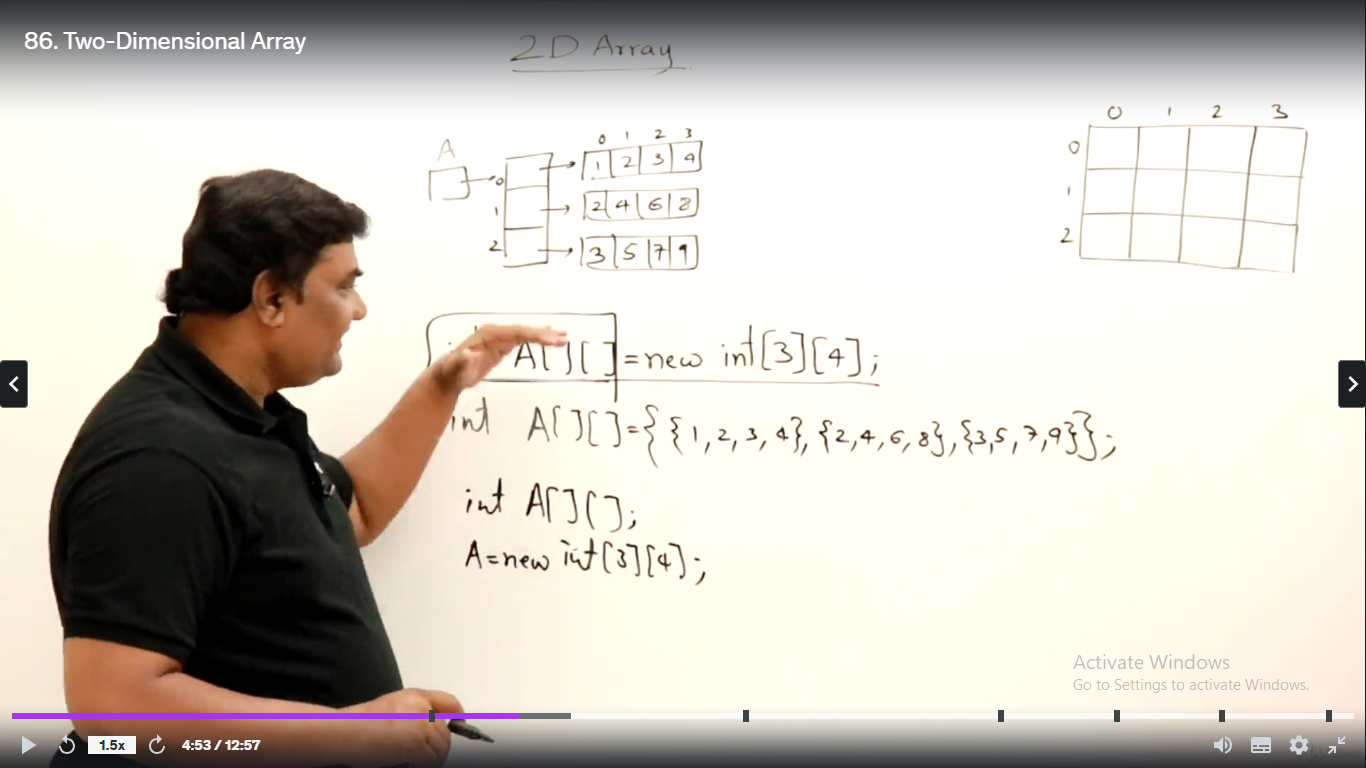 86. Two-Dimensional Array
2D Array
A
0 1 2 3
0
1 2 3 4
1
2 4 6 8
2
3 5 7 9
0 1 2 3
0
1
2
A[][] = new int[3][4];
int A[][]={{1,2,3,4},{2,4,6,8},{3,5,7,9}};
int A[][];
A=new int[3][4];
Activate Windows
Go to Settings to activate Windows.
1.5x
4:53 / 12:57